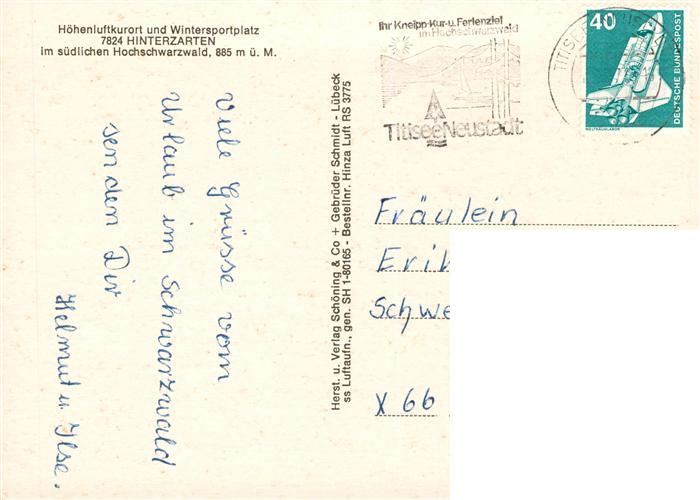 Höhenluftkurort und Wintersportplatz
7824 HINTERZARTEN
im südlichen Hochschwarzwald, 885 m ü. M.
Viele Grüsse vom
Urlaub im Schwarzwald
senden Dir
Helmut u. Ilse.
Herst. u. Verlag Schöning & Co + Gebrüder Schmidt - Lübeck
ss Luftaufn., gen. SH 1-80165 - Bestellnr. Hinza Luft RS 3775
Ihr Kneipp-Kur-u. Ferienziel
im Hochschwarzwald
Titisee Neustadt
40
DEUTSCHE BUNDESPOST
WELTRAUMLABOR
Fräulein
Schwe
X 66